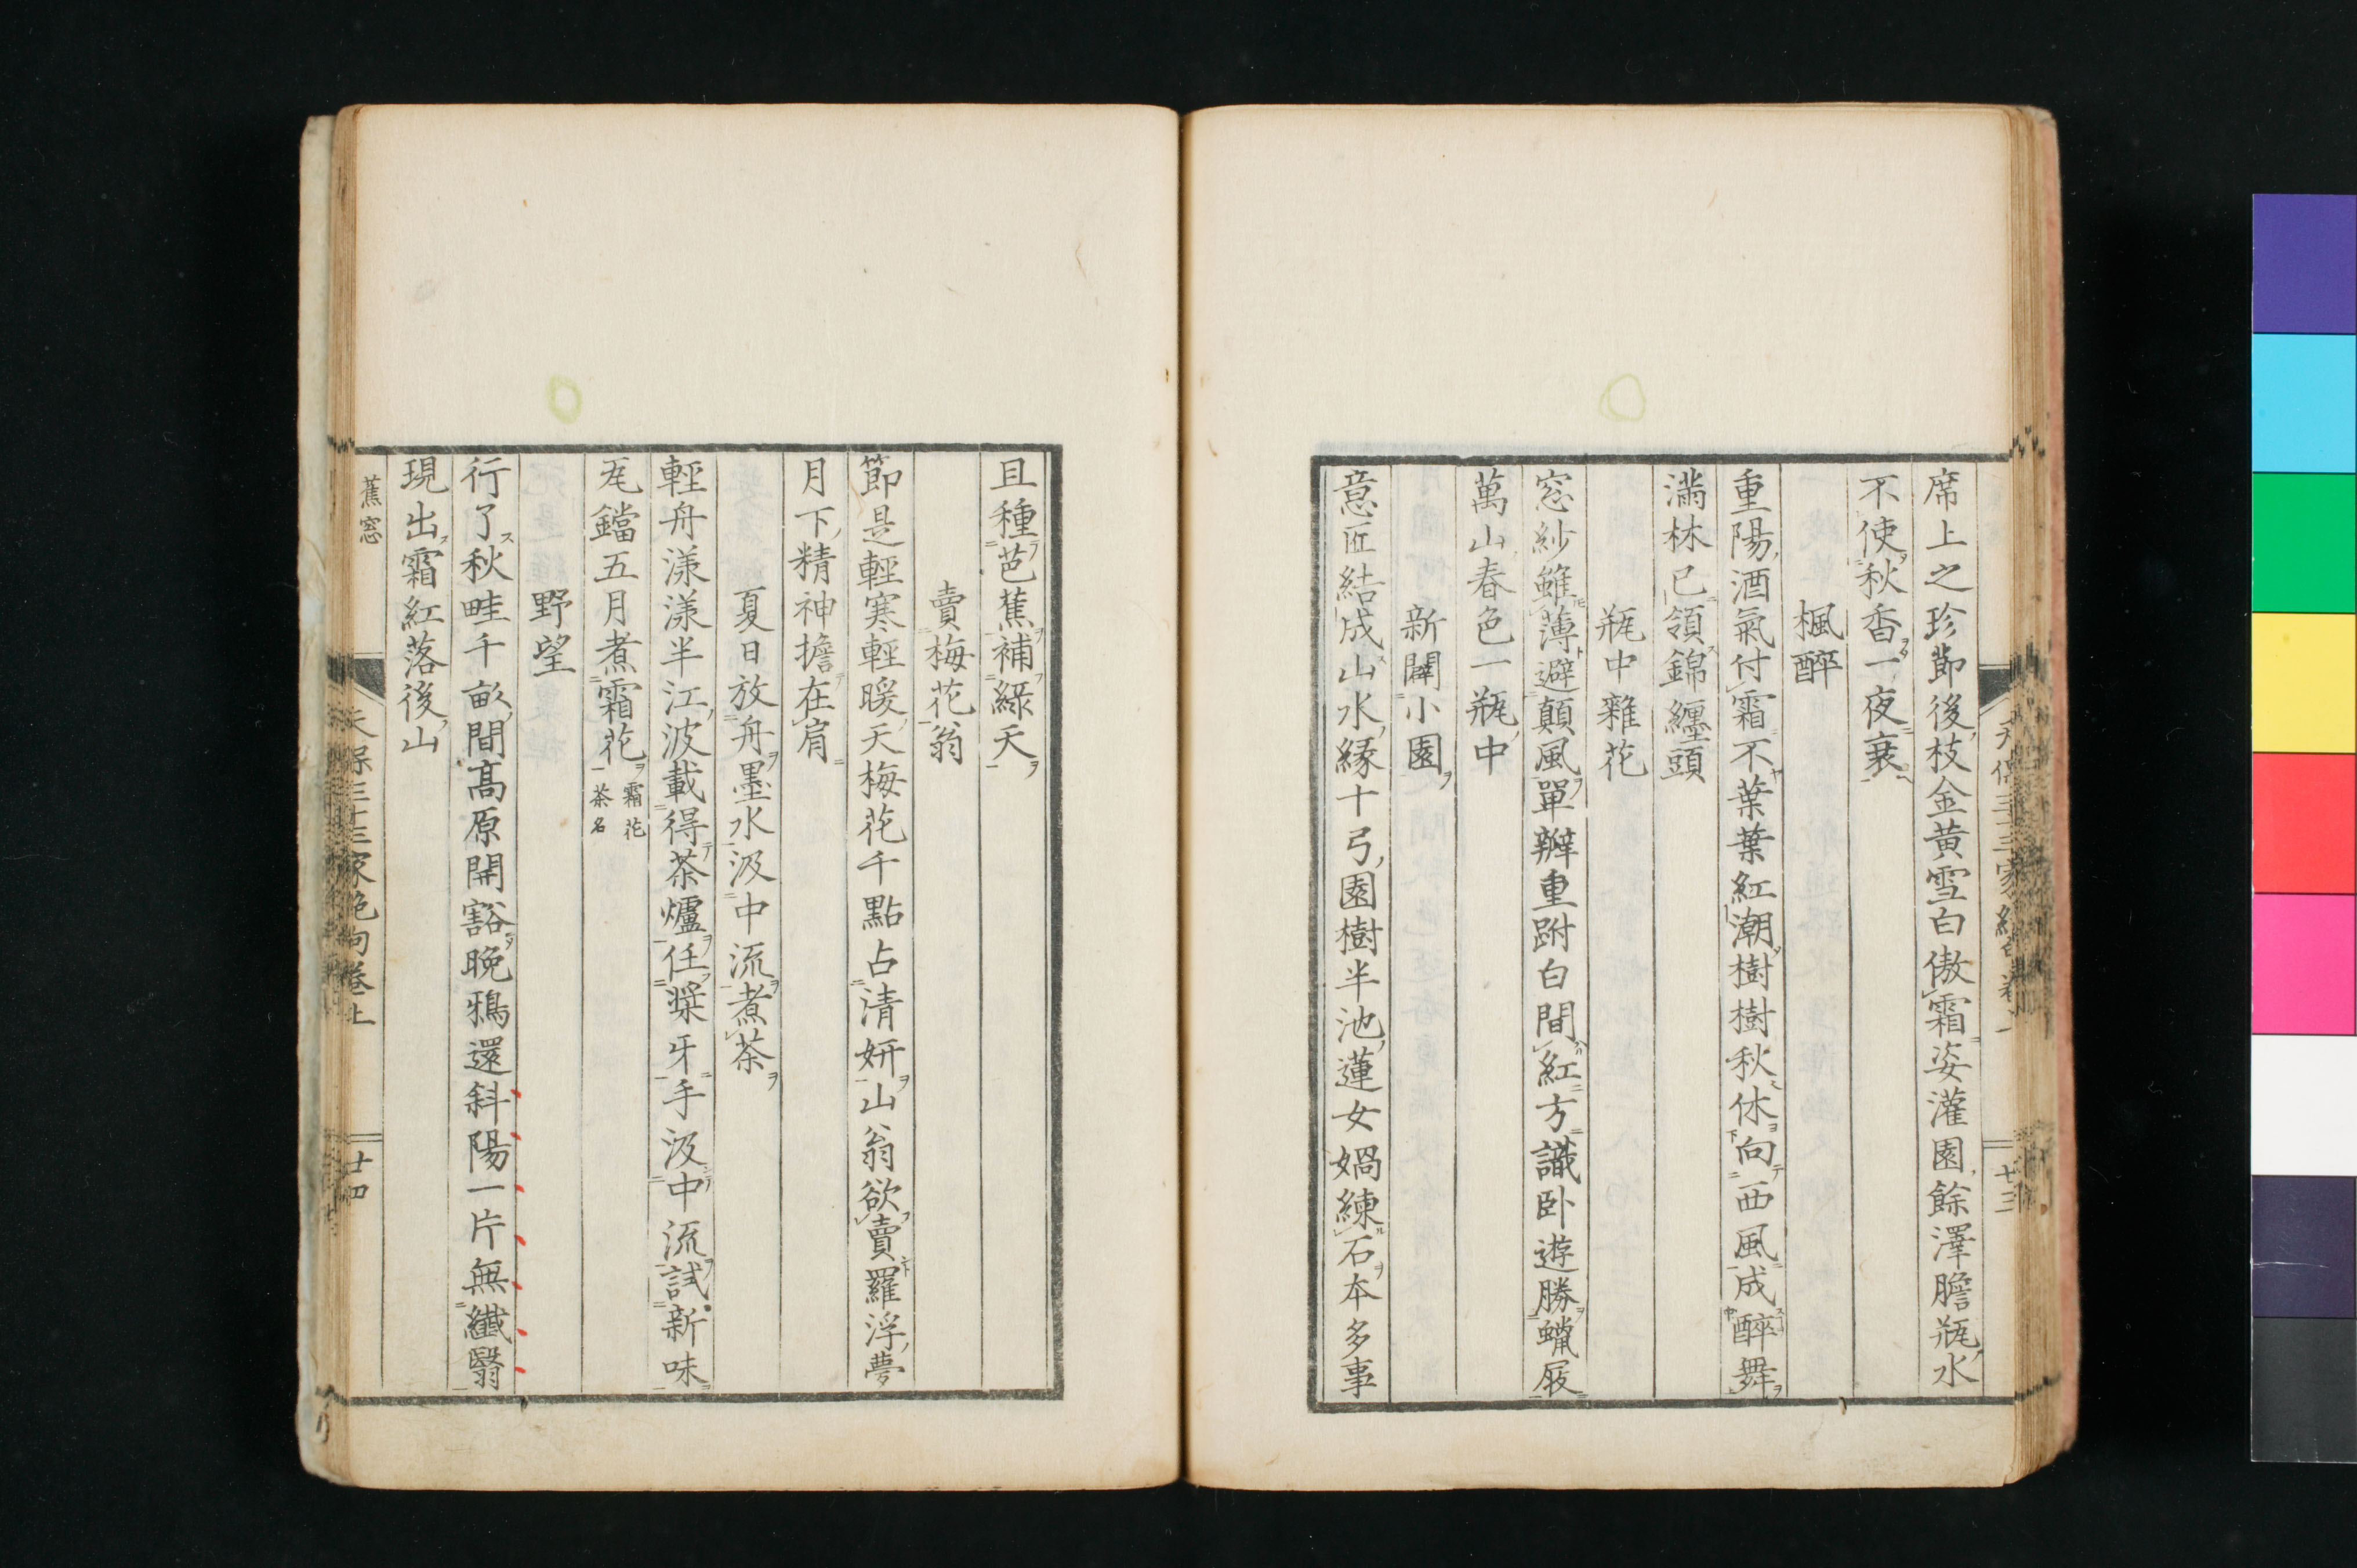 席上之珍節後枝金黄雪白傲霜姿灌園餘澤膽瓶水
不使秋香一夜衰
楓醉
重陽酒氣付霜不葉葉紅潮樹樹秋休向西風成醉舞
滿林已領錦纏頭
瓶中雜花
窓紗雖薄避顛風單辧重跗白間紅方識卧遊勝蠟屐
萬山春色一瓶中
新闢小園
意匠結成山水縁十弓園樹半池蓮女媧練石本多事
且種芭蕉補緑天
賣梅花翁
節是輕寒輕暖天梅花千點占清妍山翁欲賣羅浮夢
月下精神擔在肩
夏日放舟墨水汲中流煮茶
輕舟漾漾半江波載得茶爐任槳牙手汲中流試新味
瓦鐺五月煮霜花霜花茶名
野望
行了秋畦千畝間髙原開豁晚鴉還斜陽一片無纎翳
現出霜紅落後山
蕉窓
天保三十三家絶句卷上
廿四